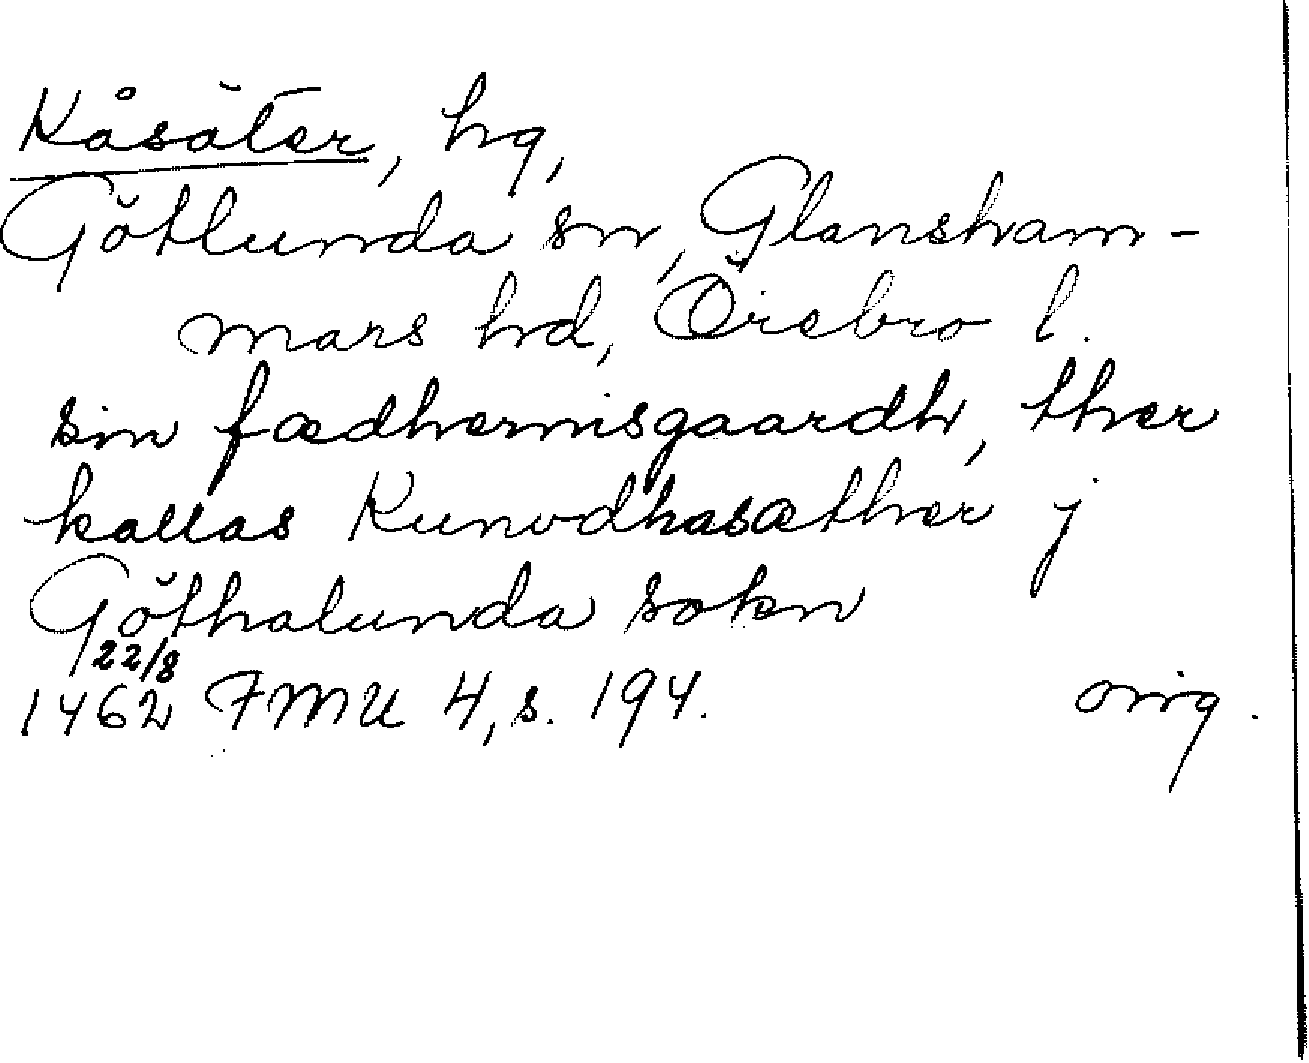 Kåsäter, hg,
Götlunda sn, Glansham-
mars hd, Örebro l.
sin fædhernisgaardh, ther
kallas Kunudhasæther j
Göthalunda sokn
22/8
1462 FMU 4, s. 194. orig.